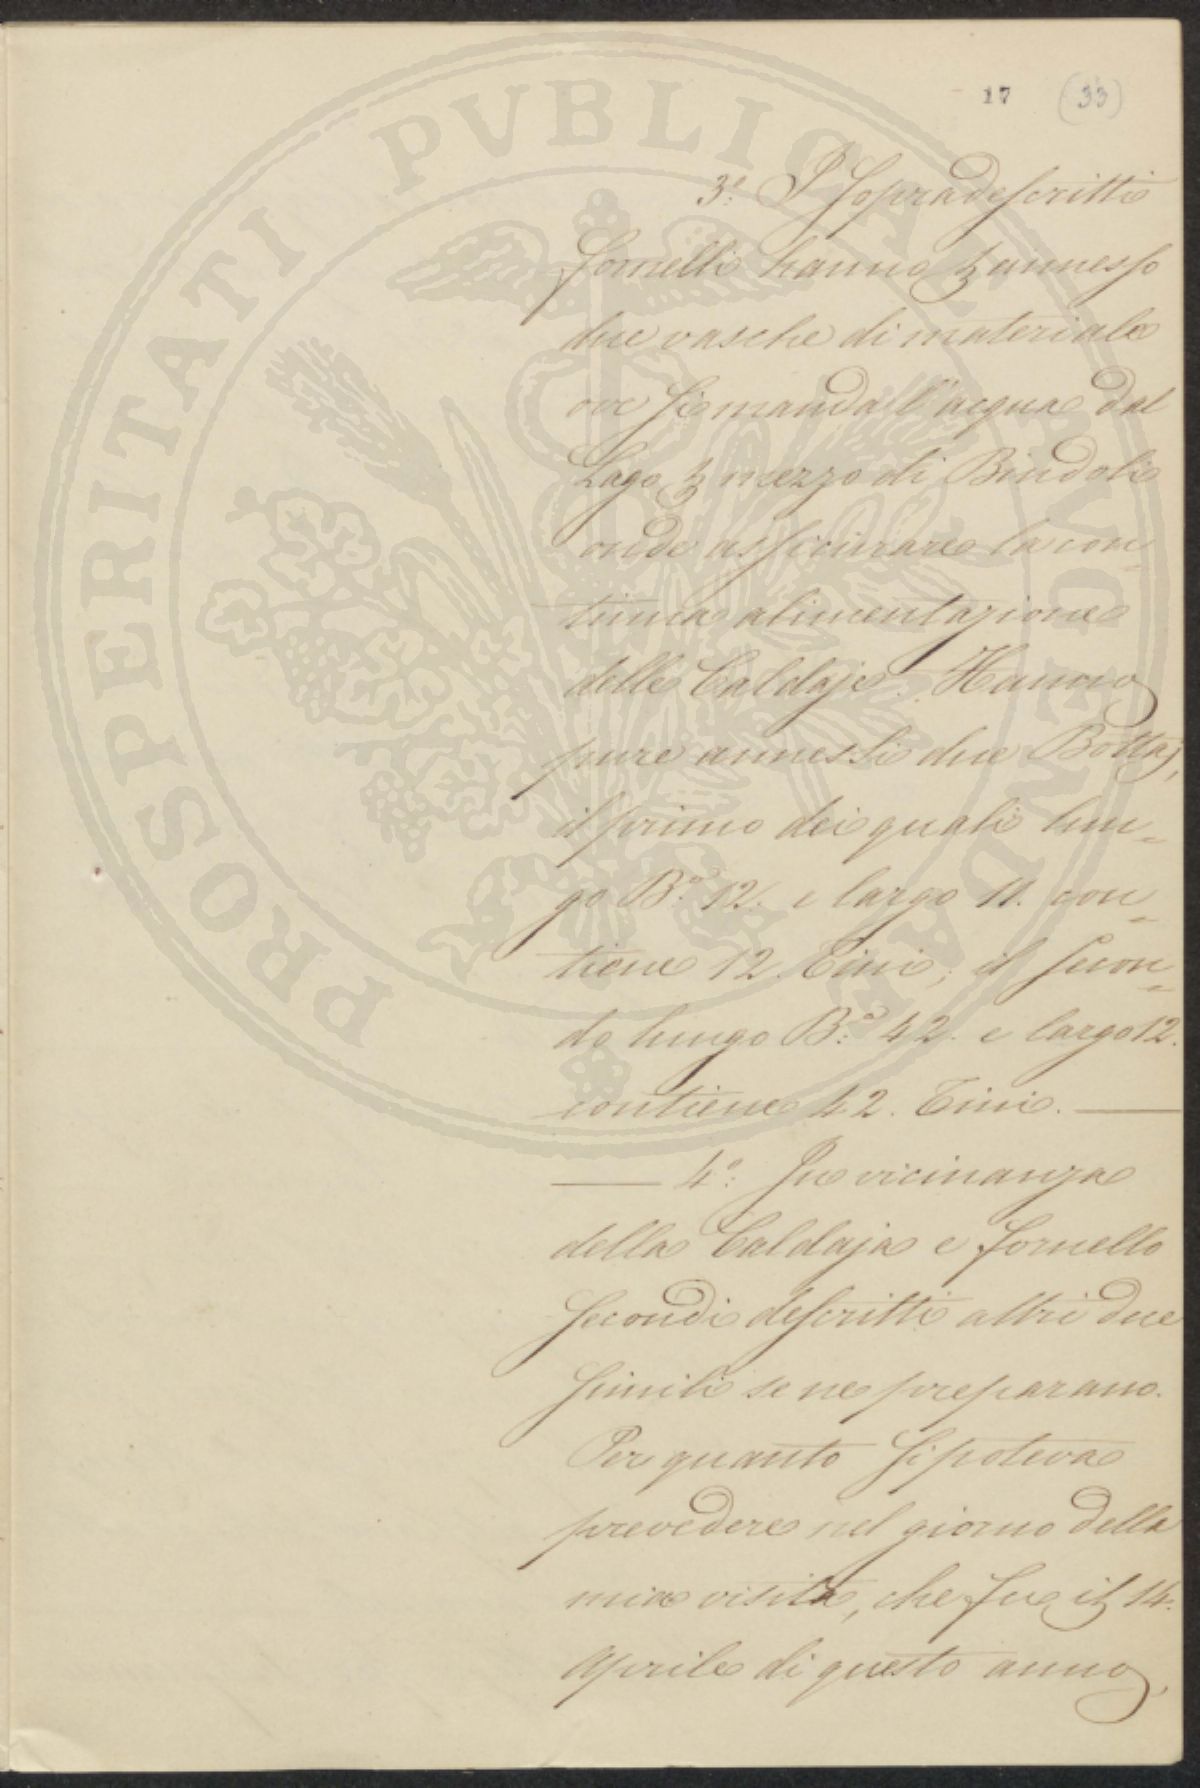 17 (33)
3.° I Sopradescritti
fornelli hanno p annesso
due vasche di materiale
ove si manda l'acqua dal
Lago p mezzo di Bindoli
onde assicurare la con=
tinua alimentazione
delle Caldaje. Hanno
pure annessi due Bottaj,
il primo dei quali lun=
go B.° 12. e largo 11. con=
tiene 12. Tini; il secon=
do lungo B.° 42. e largo 12.
contiene 42. Tini.
4.° In vicinanza
della Caldaja e fornello
secondi descritti altri due
simili se ne preparano.
Per quanto si poteva
prevedere nel giorno della
mia visita, che fu il 14.
Aprile di questo anno,
PROSPERITATI PVBLICAE AVGENDAE